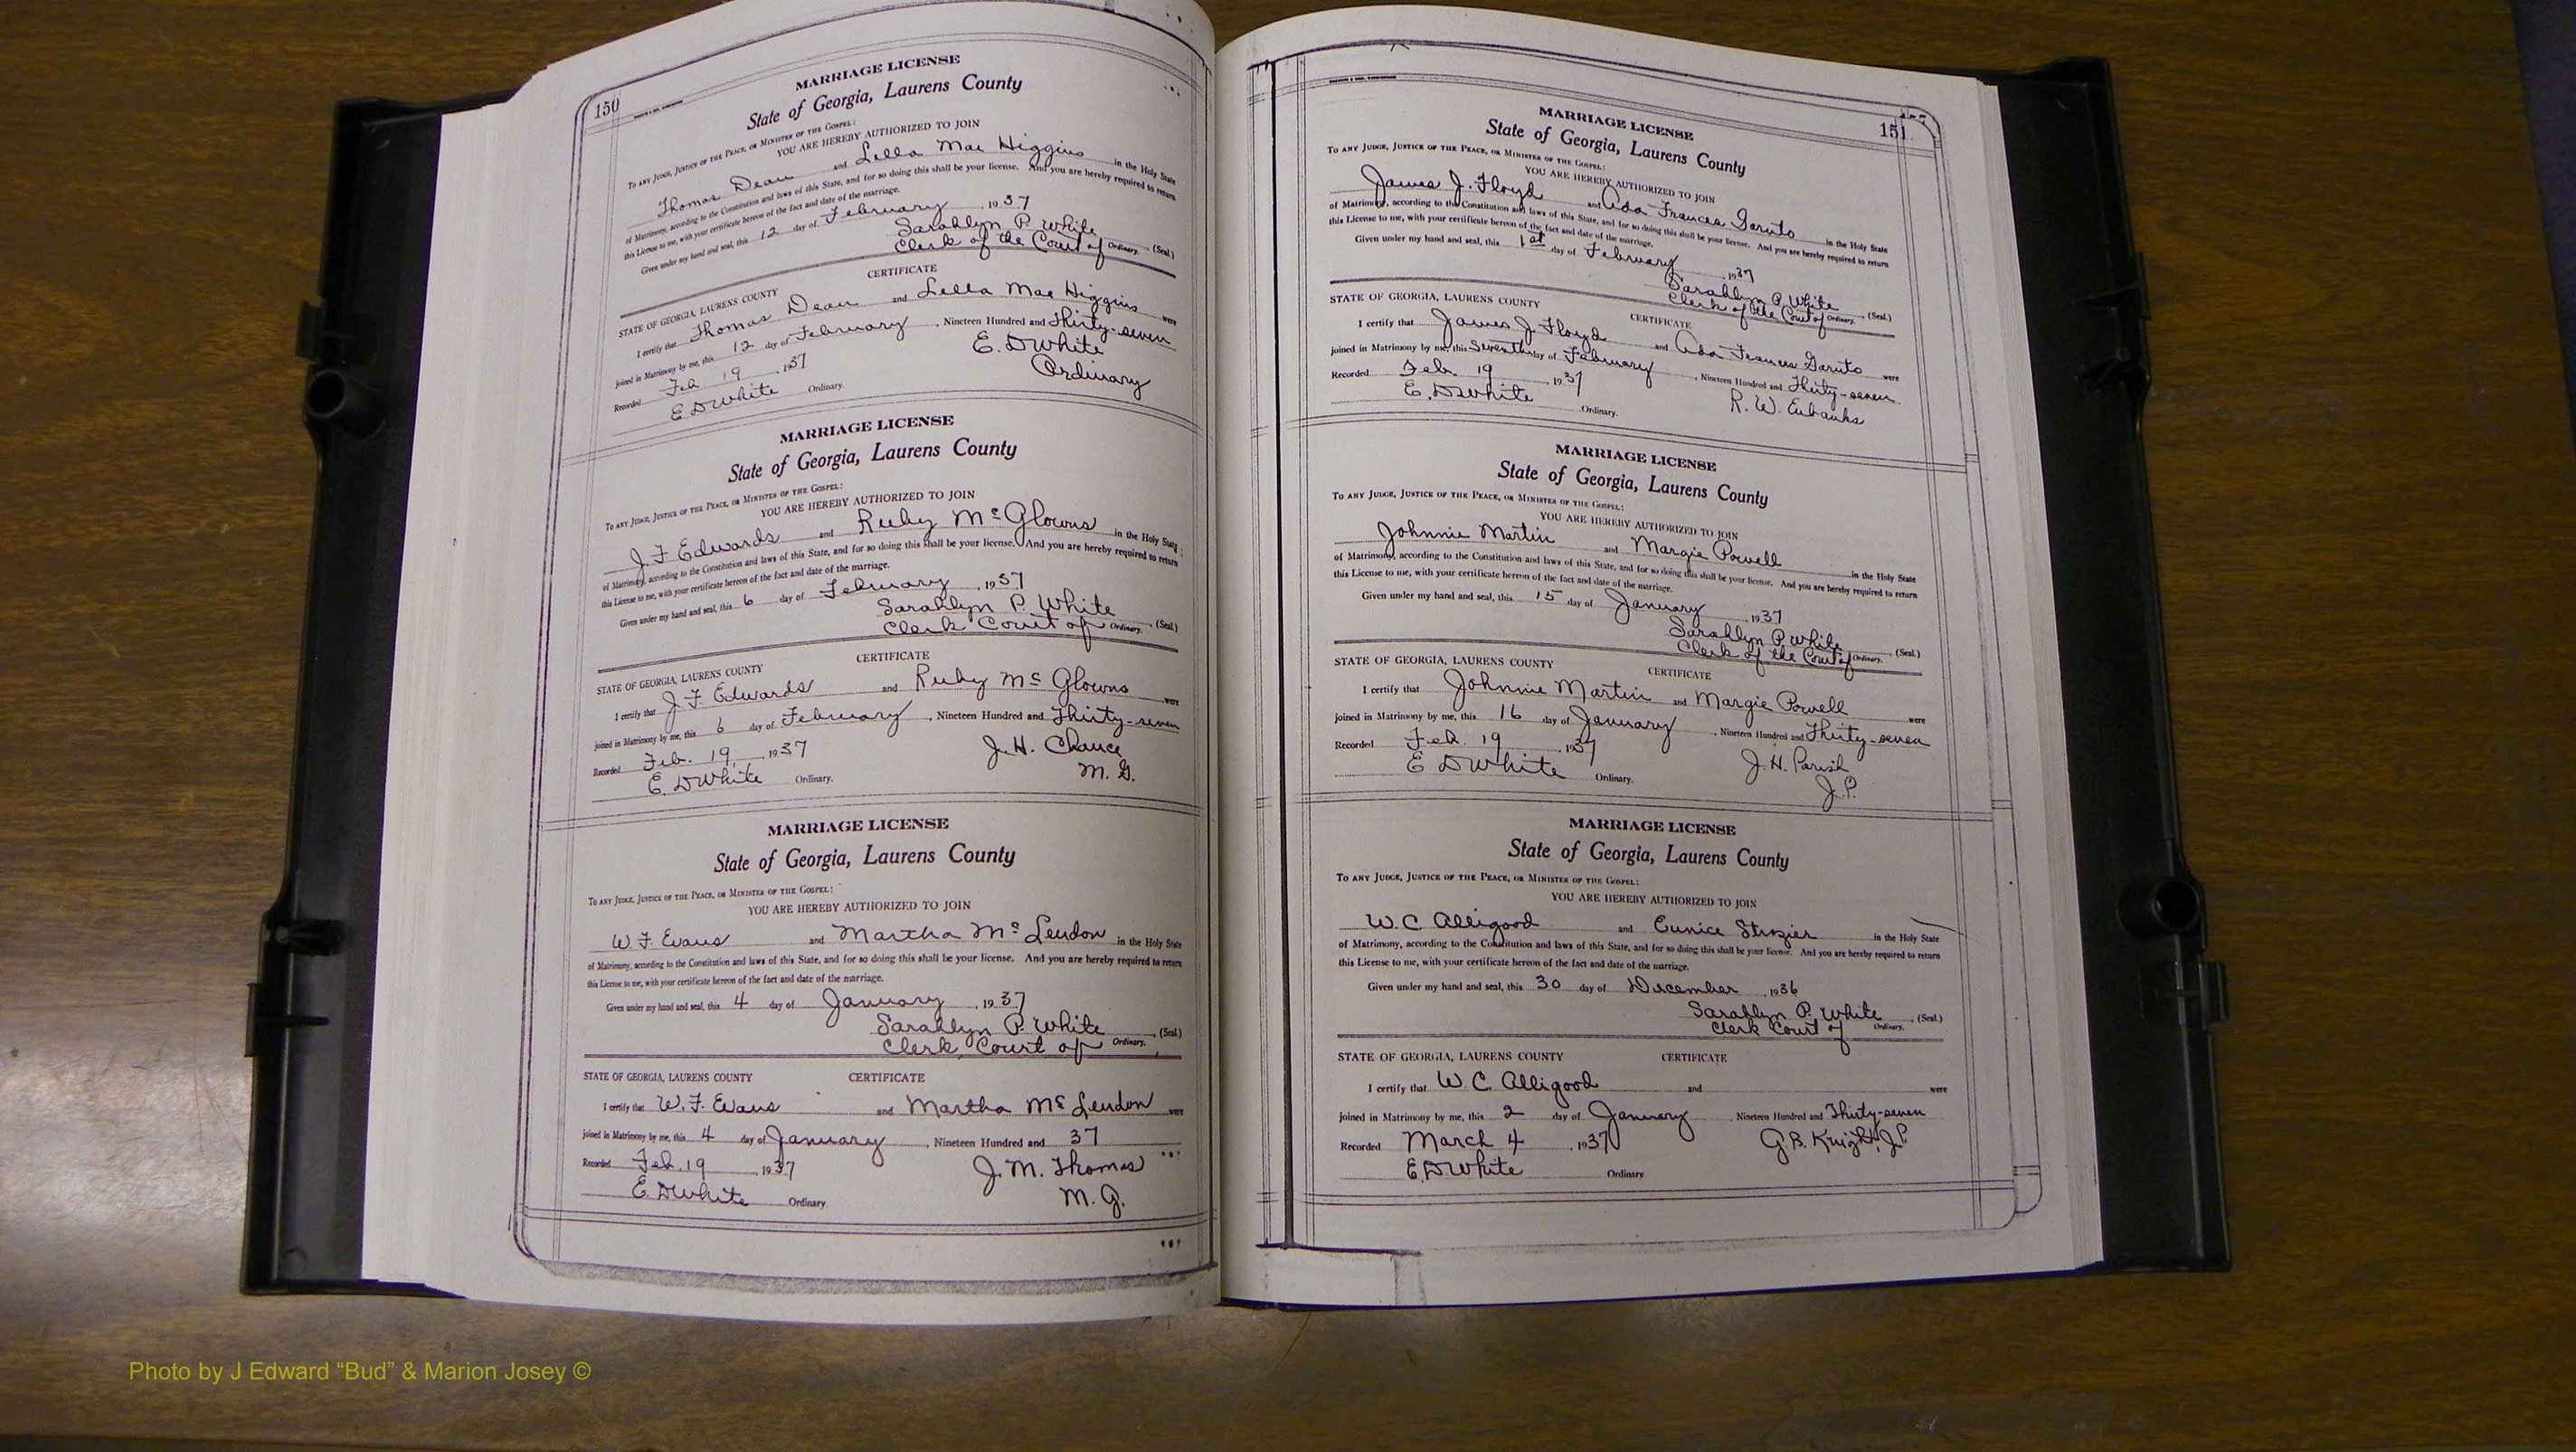 150
MARRIAGE LICENSE
State of Georgia, Laurens County
To any Judge, Justice of the Peace, or Minister of the Gospel:
YOU ARE HEREBY AUTHORIZED TO JOIN
Thomas Dean and Lella Mae Higgins in the Holy State
of Matrimony, according to the Constitution and laws of this State, and for so doing this shall be your license. And you are hereby required to return
this License to me, with your certificate hereon of the fact and date of the marriage.
Given under my hand and seal, this 12 day of February, 1937
Sarahlyn P. White (Seal.)
Clerk of the Court of Ordinary.
CERTIFICATE
STATE OF GEORGIA, LAURENS COUNTY
I certify that Thomas Dean and Lella Mae Higgins were
joined in Matrimony by me, this 12 day of February, Nineteen Hundred and Thirty-seven
Recorded Feb. 19, 1937 E. D White
E D White Ordinary. Ordinary
MARRIAGE LICENSE
State of Georgia, Laurens County
To any Judge, Justice of the Peace, or Minister of the Gospel:
YOU ARE HEREBY AUTHORIZED TO JOIN
J. F Edwards and Ruby McGlowns in the Holy State
of Matrimony, according to the Constitution and laws of this State, and for so doing this shall be your license. And you are hereby required to return
this License to me, with your certificate hereon of the fact and date of the marriage.
Given under my hand and seal, this 6 day of February, 1937
Sarahlyn P. White (Seal.)
Clerk Court of Ordinary.
CERTIFICATE
STATE OF GEORGIA, LAURENS COUNTY
I certify that J. F. Edwards and Ruby Mc Glowns were
joined in Matrimony by me, this 6 day of February, Nineteen Hundred and Thirty-seven
Recorded Feb. 19, 1937 J. H. Chance
E. D White Ordinary. M. G.
MARRIAGE LICENSE
State of Georgia, Laurens County
To any Judge, Justice of the Peace, or Minister of the Gospel:
YOU ARE HEREBY AUTHORIZED TO JOIN
W. F. Evans and Martha Mc Lendon in the Holy State
of Matrimony, according to the Constitution and laws of this State, and for so doing this shall be your license. And you are hereby required to return
this License to me, with your certificate hereon of the fact and date of the marriage.
Given under my hand and seal, this 4 day of January, 1937
Sarahlyn P. White (Seal.)
Clerk, Court of Ordinary.
STATE OF GEORGIA, LAURENS COUNTY CERTIFICATE
I certify that W. F. Evans and Martha Mc Lendon were
joined in Matrimony by me, this 4 day of January, Nineteen Hundred and 37
Recorded Feb. 19, 1937 J. M. Thomas
E. D White Ordinary. M. G.
151
MARRIAGE LICENSE
State of Georgia, Laurens County
To any Judge, Justice of the Peace, or Minister of the Gospel:
YOU ARE HEREBY AUTHORIZED TO JOIN
James J. Floyd and Ada Frances Garuto in the Holy State
of Matrimony, according to the Constitution and laws of this State, and for so doing this shall be your license. And you are hereby required to return
this License to me, with your certificate hereon of the fact and date of the marriage.
Given under my hand and seal, this 1st day of February, 1937
Sarahlyn P. White (Seal.)
Clerk of the Court of Ordinary.
STATE OF GEORGIA, LAURENS COUNTY CERTIFICATE
I certify that James J Floyd and Ada Frances Garuto were
joined in Matrimony by me, this Seventh day of February, Nineteen Hundred and Thirty-seven
Recorded Feb. 19, 1937 R. W. Eubanks
E. D White Ordinary.
MARRIAGE LICENSE
State of Georgia, Laurens County
To any Judge, Justice of the Peace, or Minister of the Gospel:
YOU ARE HEREBY AUTHORIZED TO JOIN
Johnnie Martin and Margie Powell in the Holy State
of Matrimony, according to the Constitution and laws of this State, and for so doing this shall be your license. And you are hereby required to return
this License to me, with your certificate hereon of the fact and date of the marriage.
Given under my hand and seal, this 15 day of January, 1937
Sarahlyn P White (Seal.)
Clerk of the Court of Ordinary.
STATE OF GEORGIA, LAURENS COUNTY CERTIFICATE
I certify that Johnnie Martin and Margie Powell were
joined in Matrimony by me, this 16 day of January, Nineteen Hundred and Thirty-seven
Recorded Feb. 19, 1937 J. H. Parish
E D White Ordinary. J. P.
MARRIAGE LICENSE
State of Georgia, Laurens County
To any Judge, Justice of the Peace, or Minister of the Gospel:
YOU ARE HEREBY AUTHORIZED TO JOIN
W. C Alligood and Eunice Strozier in the Holy State
of Matrimony, according to the Constitution and laws of this State, and for so doing this shall be your license. And you are hereby required to return
this License to me, with your certificate hereon of the fact and date of the marriage.
Given under my hand and seal, this 30 day of December, 1936
Sarahlyn P. White (Seal.)
Clerk Court of Ordinary.
STATE OF GEORGIA, LAURENS COUNTY CERTIFICATE
I certify that W. C. Alligood and were
joined in Matrimony by me, this 2 day of January Nineteen Hundred and Thirty-seven
Recorded March 4, 1937 G. B. Knight, J. P.
E. D White Ordinary
Photo by J Edward “Bud” & Marion Josey ©